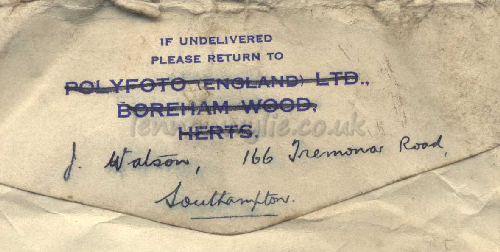 IF UNDELIVERED
PLEASE RETURN TO
POLYFOTO (ENGLAND) LTD.,
BOREHAM WOOD,
HERTS.
J. Watson, 166 Tremona Road,
Southampton.